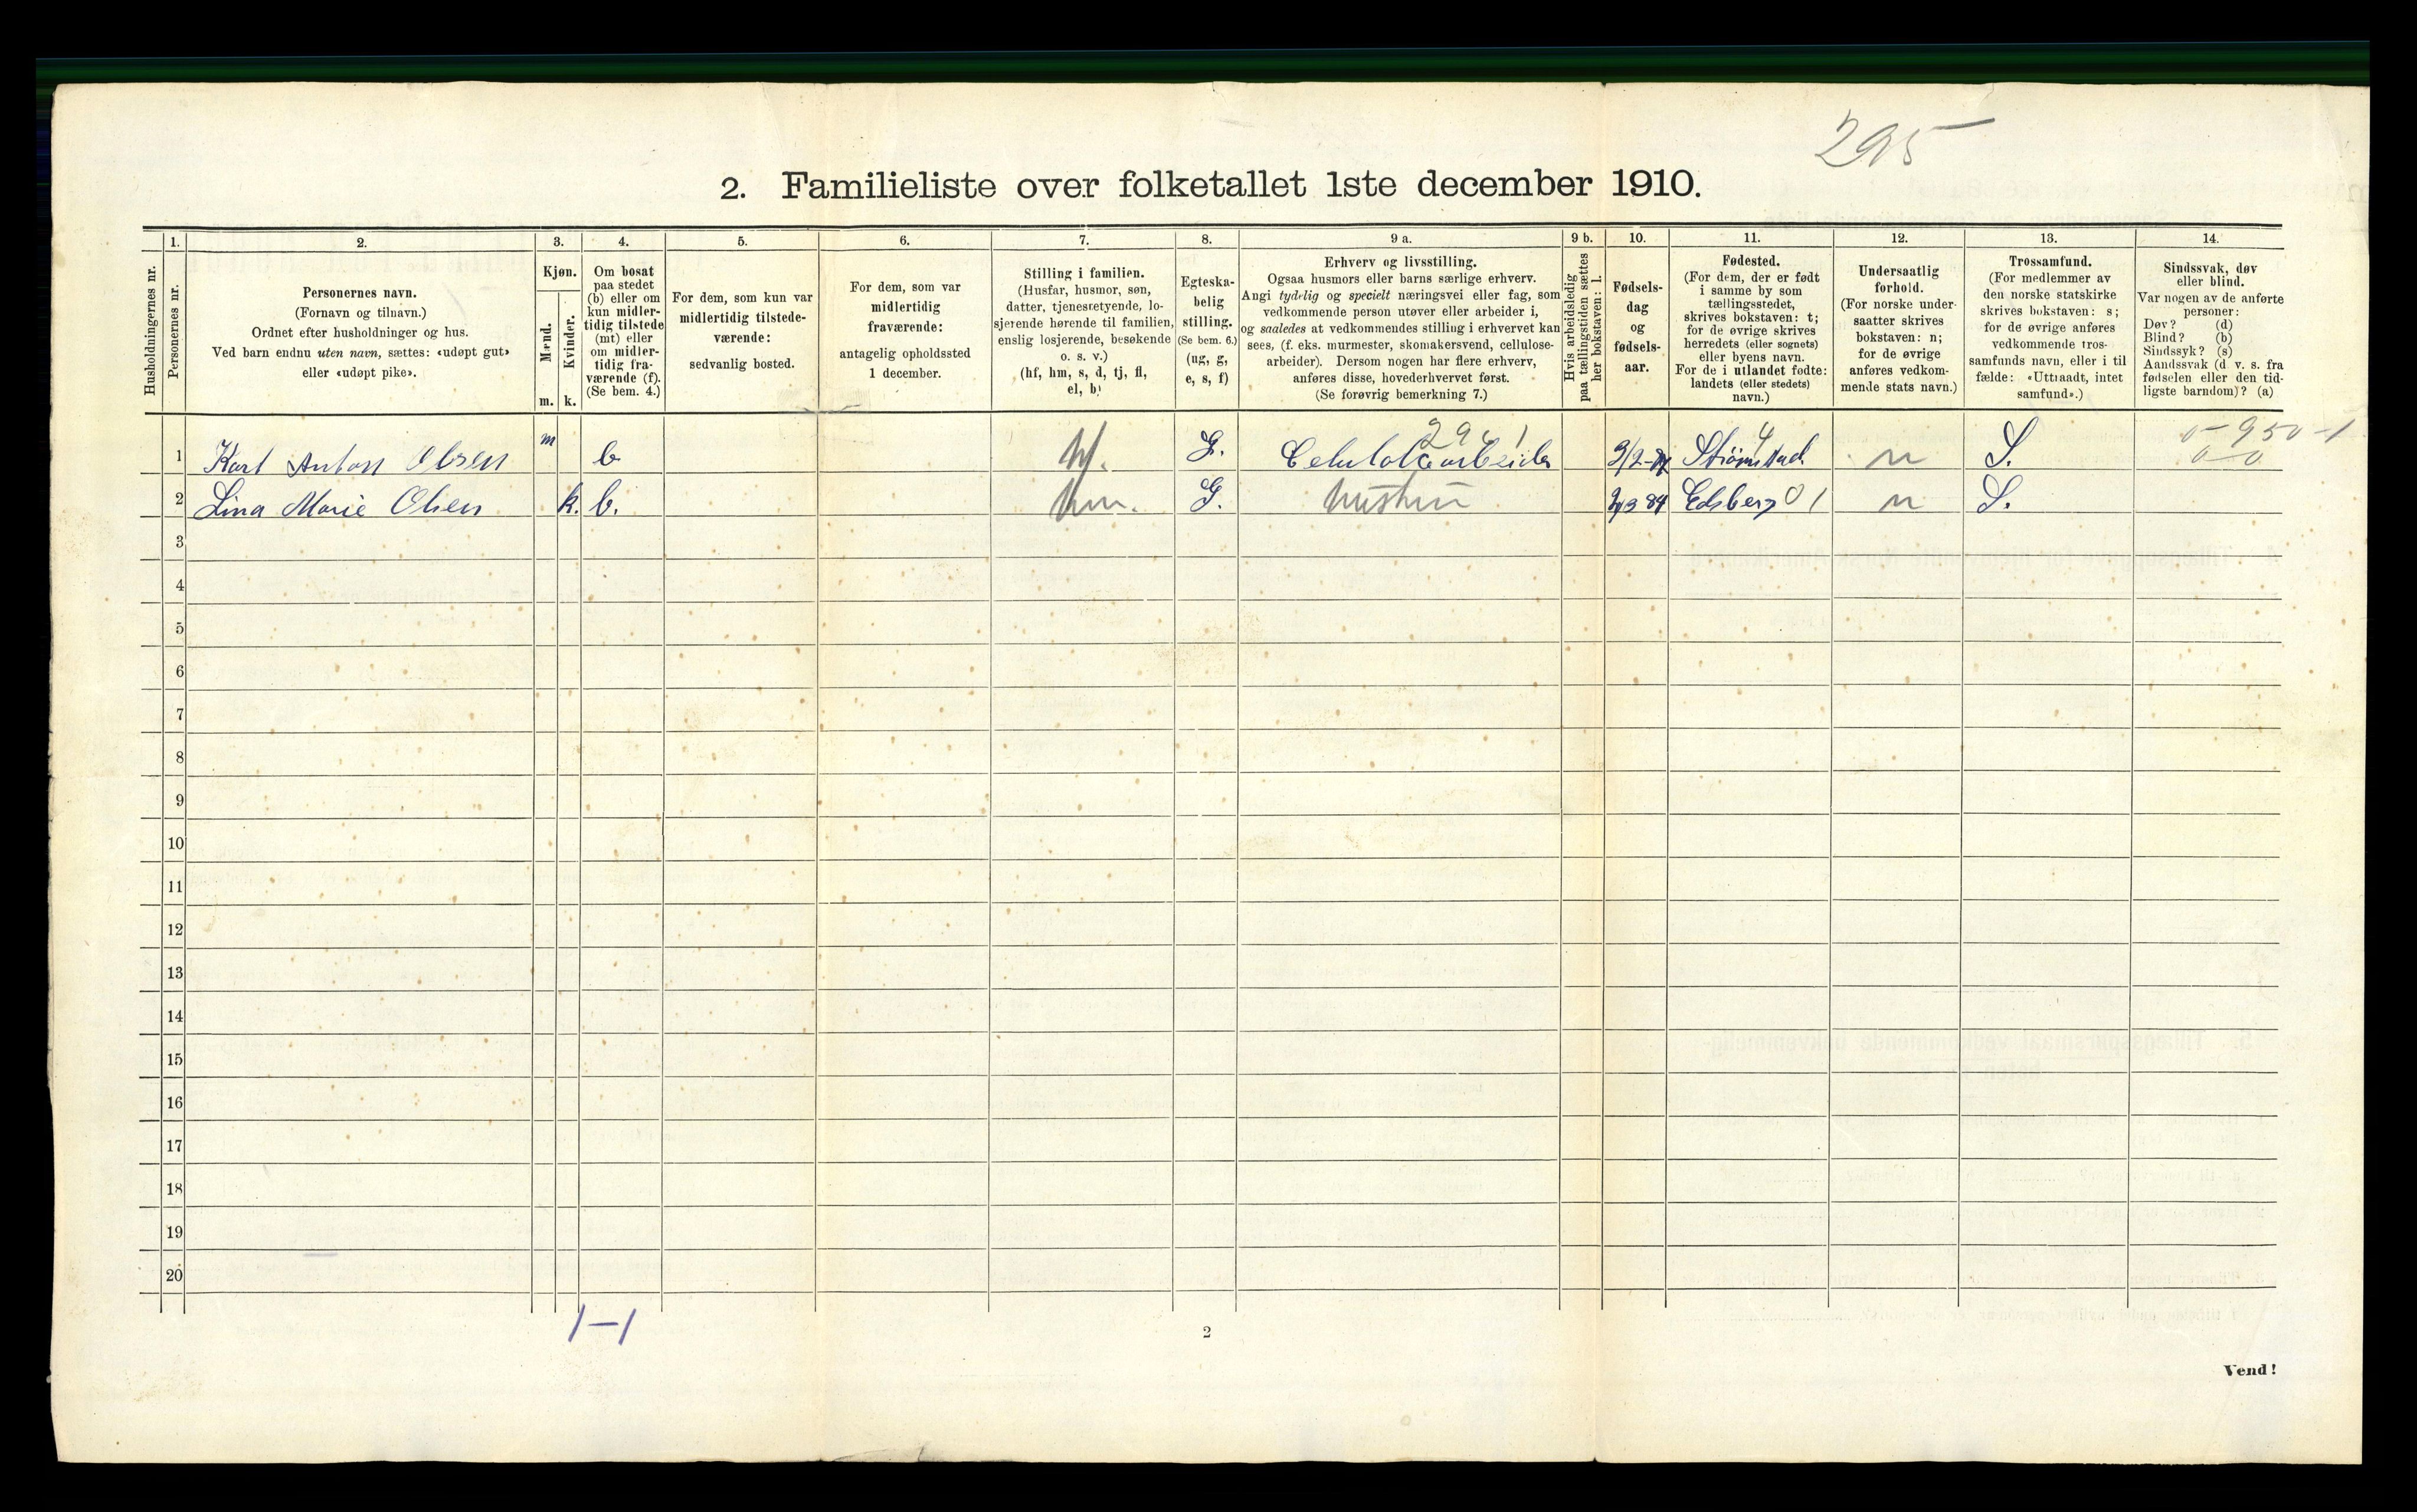 295
2. Familieliste over folketallet 1ste december 1910.
1. 2. 3. 4. 5. 6. 7. 8. 9 a. 9 b. 10. 11. 12. 13. 14.
Husholdningernes nr.
Personernes nr.
Personernes navn.
(Fornavn og tilnavn.)
Ordnet efter husholdninger og hus.
Ved barn endnu uten navn, sættes: «udøpt gut»
eller «udøpt pike».
Kjøn.
Mænd.
Kvinder.
m. k.
Om bosat
paa stedet
(b) eller om
kun midler-
tidig tilstede
(mt) eller
om midler-
tidig fra-
værende (f).
(Se bem. 4.)
For dem, som kun var
midlertidig tilstede-
værende:
sedvanlig bosted.
For dem, som var
midlertidig
fraværende:
antagelig opholdssted
1 december.
Stilling i familien.
(Husfar, husmor, søn,
datter, tjenestetyende, lo-
sjerende hørende til familien,
enslig losjerende, besøkende
o. s. v.)
(hf, hm, s, d, tj, fl,
el, b)
Egteska-
belig
stilling.
(Se bem. 6.)
(ug, g,
e, s, f)
Erhverv og livsstilling.
Ogsaa husmors eller barns særlige erhverv.
Angi tydelig og specielt næringsvei eller fag, som
vedkommende person utøver eller arbeider i,
og saaledes at vedkommendes stilling i erhvervet kan
sees, (f. eks. murmester, skomakersvend, cellulose-
arbeider). Dersom nogen har flere erhverv,
anføres disse, hovederhvervet først.
(Se forøvrig bemerkning 7.)
Hvis arbeidsledig
paa tællingstiden sættes
her bokstaven: l.
Fødsels-
dag
og
fødsels-
aar.
Fødested.
(For dem, der er født
i samme by som
tællingsstedet,
skrives bokstaven: t;
for de øvrige skrives
herredets (eller sognets)
eller byens navn.
For de i utlandet fødte:
landets (eller stedets)
navn.)
Undersaatlig
forhold.
(For norske under-
saatter skrives
bokstaven: n;
for de øvrige
anføres vedkom-
mende stats navn.)
Trossamfund.
(For medlemmer av
den norske statskirke
skrives bokstaven: s;
for de øvrige anføres
vedkommende tros-
samfunds navn, eller i til
fælde: «Uttraadt, intet
samfund».)
Sindssvak, døv
eller blind.
Var nogen av de anførte
personer:
Døv? (d)
Blind? (b)
Sindssyk? (s)
Aandssvak (d. v. s. fra
fødselen eller den tid-
ligste barndom)? (a)
1 Karl Anton Olsen m b hf. G. Celulosearbeider Strømstad n S.
2 Lina Marie Olsen k. b. hm. G. hustru Edsberg 01 n S.
3
4
5
6
7
8
9
10
11
12
13
14
15
16
17
18
19
20
1-1
2
Vend!